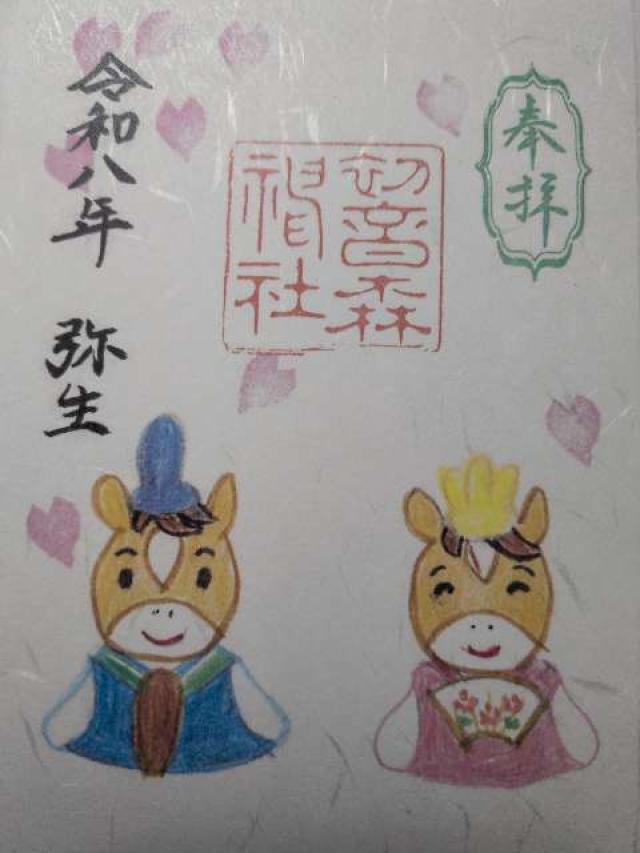 奉拝
初音森
神社
令和八年 弥生